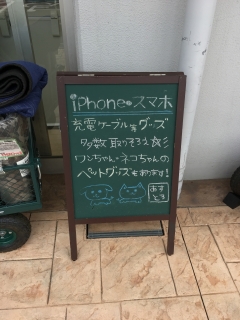 iPhone・スマホ
充電ケーブル等グッズ
多数取りそろえ☆彡
ワンちゃん・ネコちゃんの
ペットグッズもあります!
あすとす